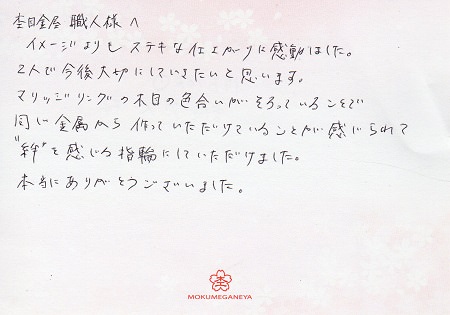 杢目金屋 職人様へ
イメージよりも ステキな仕上がりに感動しました。
2人で今後大切にしていきたいと思います。
マリッジリングの木目の色合いがそろっていることで
同じ金属から作っていただけていることが感じられて
"絆"を感じる指輪にしていただけました。
本当にありがとうございました。
杢
MOKUMEGANEYA